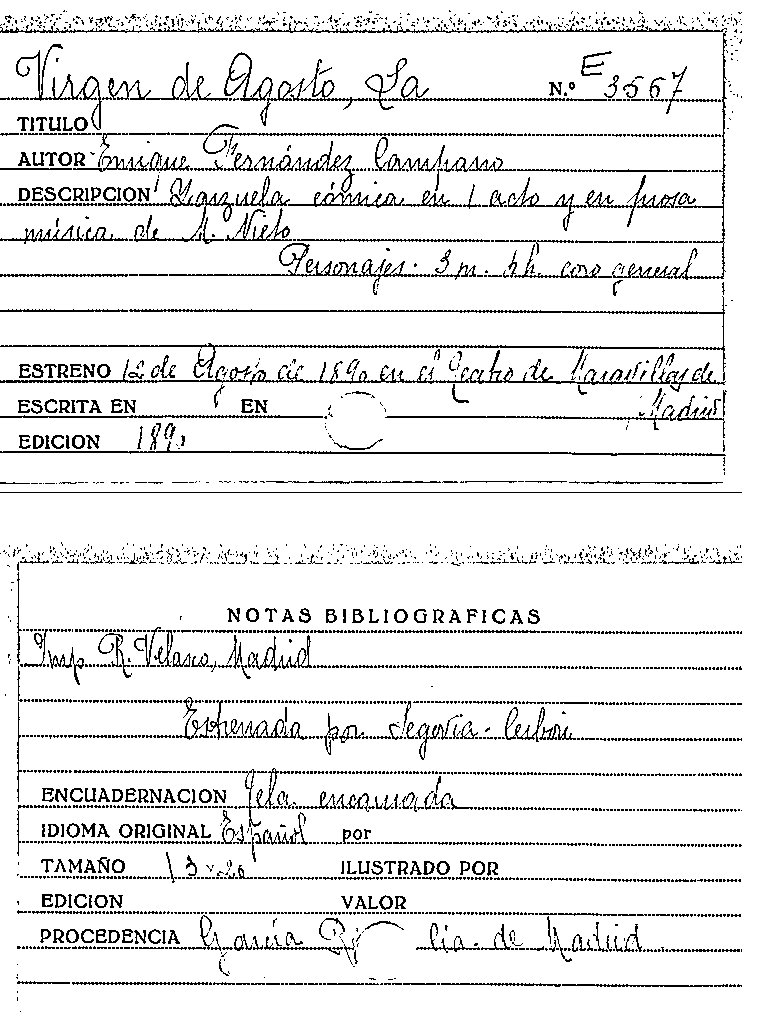 Virgen de Agosto, La N.º E 3567
TITULO
AUTOR Enrique Fernández Campano
DESCRIPCION Zarzuela cómica en 1 acto y en prosa
música de M. Nieto
Personajes. 3 m. 4 h. coro general
ESTRENO 12 de Agosto de 1890 en el Teatro de Maravillas de
Madrid
ESCRITA EN EN
EDICION 1890
NOTAS BIBLIOGRAFICAS
Imp R. Velasco, Madrid
Estrenada por Segovia -
ENCUADERNACION Tela encarnada
IDIOMA ORIGINAL Español por
TAMAÑO 13 x 20 ILUSTRADO POR
EDICION VALOR
PROCEDENCIA García Cia. de Madrid